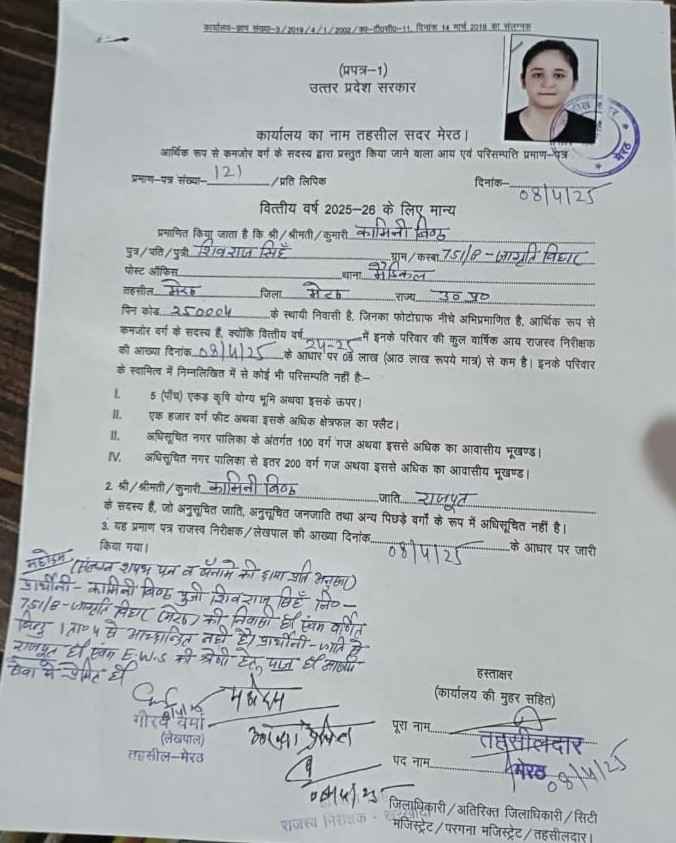 कार्यालय-ज्ञाप संख्या-3/2019/4/1/2002/का-टी0सी0-11, दिनांक 14 मार्च 2019 का संलग्नक
(प्रपत्र-1)
उत्तर प्रदेश सरकार
कार्यालय का नाम तहसील सदर मेरठ।
आर्थिक रूप से कमजोर वर्ग के सदस्य द्वारा प्रस्तुत किया जाने वाला आय एवं परिसम्पत्ति प्रमाण-पत्र
प्रमाण-पत्र संख्या- 121 /प्रति लिपिक दिनांक- 08/4/25
वित्तीय वर्ष 2025-26 के लिए मान्य
प्रमाणित किया जाता है कि श्री/श्रीमती/कुमारी कामिनी
पुत्र/पति/पुत्री शिवराज सिंह ग्राम/कस्बा 751/8-जागृति विहार
पोस्ट ऑफिस थाना मैडिकल
तहसील मेरठ जिला मेरठ राज्य उ0 प्र0
पिन कोड 250004 के स्थायी निवासी है, जिनका फोटोग्राफ नीचे अभिप्रमाणित है, आर्थिक रूप से
कमजोर वर्ग के सदस्य हैं, क्योंकि वित्तीय वर्ष 24-25 में इनके परिवार की कुल वार्षिक आय राजस्व निरीक्षक
की आख्या दिनांक 08/4/25 के आधार पर 08 लाख (आठ लाख रूपये मात्र) से कम है। इनके परिवार
के स्वामित्व में निम्नलिखित में से कोई भी परिसम्पति नहीं है:-
I. 5 (पाँच) एकड़ कृषि योग्य भूमि अथवा इसके ऊपर।
II. एक हजार वर्ग फीट अथवा इसके अधिक क्षेत्रफल का फ्लैट।
II. अधिसूचित नगर पालिका के अंतर्गत 100 वर्ग गज अथवा इससे अधिक का आवासीय भूखण्ड।
IV. अधिसूचित नगर पालिका से इतर 200 वर्ग गज अथवा इससे अधिक का आवासीय भूखण्ड।
2. श्री/श्रीमती/कुमारी कामिनी जाति राजपूत
के सदस्य हैं, जो अनुसूचित जाति, अनुसूचित जनजाति तथा अन्य पिछड़े वर्गों के रूप में अधिसूचित नहीं है।
3. यह प्रमाण पत्र राजस्व निरीक्षक/लेखपाल की आख्या दिनांक 08/4/25 के आधार पर जारी
किया गया।
महोदय (संलग्न शपथ पत्र व बैनामे की छाया प्रति अनुसार)
प्रार्थीनी - कामिनी पुत्री शिवराज सिंह नि0-
751/8-जागृति विहार (मेरठ) की निवासी है एवम वर्णित
बिन्दु 1 ता0 4 से आच्छादित नही है। प्रार्थीनी-जाति से
राजपूत है एवम E.W.S की श्रेणी हेतु पात्र है
सेवा मे प्रेषित है
गौरव वर्मा
(लेखपाल)
तहसील-मेरठ
महोदय
आख्या प्रेषित
08/4/25
राजस्व निरीक्षक
हस्ताक्षर
(कार्यालय की मुहर सहित)
पूरा नाम
तहसीलदार
पद नाम
मेरठ 08/4/25
जिलाधिकारी/अतिरिक्त जिलाधिकारी/सिटी
मजिस्ट्रेट/परगना मजिस्ट्रेट/तहसीलदार।